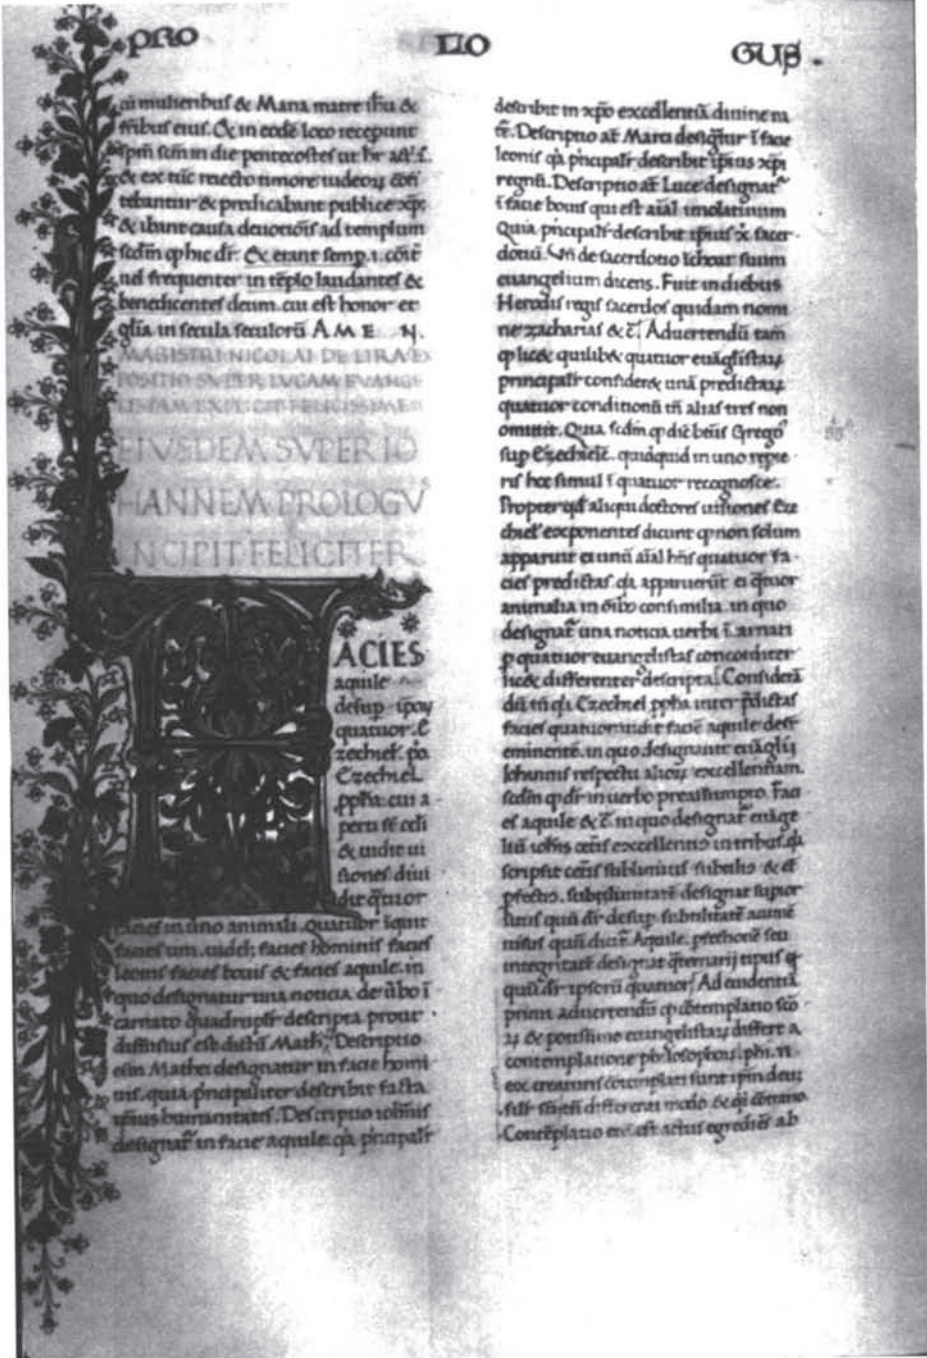 PRO LIO GUS.
mulieribus & Maria matre ihu &
fribus eius. & in eode loco receperunt
spm scm in die pentecostes ut hr act. 2.
& ex tuc reiecto timore iudeoꝝ
& predicabant publice xpm
& ibant causa deuotiois ad templum
scdm ꝙ hic dr. Et erant semp. i.
uel frequenter in teplo laudantes &
benedicentes deum. cui est honor et
glia in secula seculorū AMEN.
MAGISTRI NICOLAI DE LIRA EX
POSITIO SVPER LVCAM EVANGE
LISTAM EXPLICIT FELICISSIME
EIVSDEM SVPER IO
HANNEM PROLOGVS
INCIPIT FELICITER
FACIES
aquile
desup ipoꝝ
quatuor. E
zechiel. pº
Ezechiel
ppha. cui a
perti st celi
& uidit ui
siones diui
dit qtuor
facies in uno animali. quatuor igitur
facies um. uidelꝫ facies hominis facies
leonis facies bouis & facies aquile. in
quo designatur una noticia de ūbo ī
carnato quadruplr descripta prout
diffusius est dictū Math. Descriptio
eim Mathei designatur in facie homi
nis. quia pncipaliter describit facta
ipius humanitatis. Descriptio iohīnis
designat in facie aquile. qa pncipalr
describit in xpo excellentiā diuine na
tr. Descriptio at Marci designtur ī facie
leonis qa pncipalr describit ipius xpi
regnū. Descriptio at Luce designatr
ī facie bouis qui est aial imolatiuum
Quia pncipalr describit ipius x sacer
dotiū. Vn de sacerdotio ichoat suum
euangelium dicens. Fuit in diebus
Herodis regis sacerdos quidam nomi
ne zacharias & c̄. Aduertendū tam
ꝙ lic& quilib& quatuor euāglistaꝝ
principalr consider& unā predictaꝝ
quatuor conditionū tn alias tres non
omittit. Quia scdm ꝙ dic beus Grego
sup Ezechiele. quicquid in uno repie
ris hoc simul ī quatuor recognosce.
Propter qd aliqui doctores uisiones Eze
chiel exponentes dicunt ꝙ non solum
apparuit ei unū aial hns quatuor fa
cies predictas. qa apparuerut ei qtuor
animalia in oibo consimilia. in quo
designatr una noticia uerbi icarnati
p quatuor euangelistas concorditer
lic& differenter descripta. Considerā
dū tn qd Ezechiel ppha inter pdictas
facies quatuor uidit facie aquile desr
eminente. in quo designatur euāglij
Iohannis respectu alioꝝ excellentiam.
scdm ꝙ dr in uerbo preassumpto. Faci
es aquile & c̄. in quo designatr euāge
liū iohis cetis excellentiꝰ in tribus. qa
scripsit cetis sublimius subtiliꝰ & et
pfectiꝰ. sublimitatē designat supior
situs quū dr desup. subtilitatē acumē
uisus quū dicitr Aquile. pfectionē seu
integritatē designat qternarij tipus
quū dr ipsorū quatuor. Ad euidentiā
primi aduertendū ꝙ contemplatio
& potissime euangelistaꝝ differt a
contemplatione philosophoꝝ. phi. n.
ex creaturis contemplati sunt ipm deuꝫ
modo
Contēplatio est actus egrediēs ab